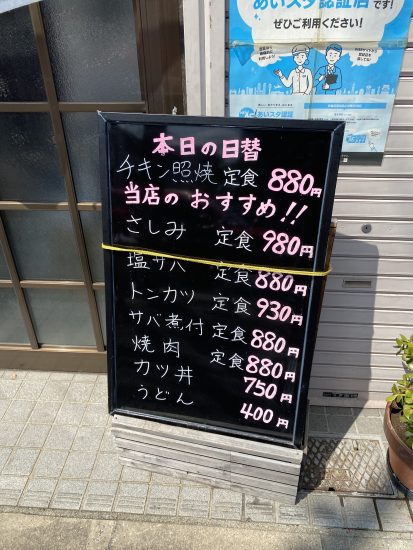 あいスタ認証店です!
ぜひご利用ください!
あいスタ認証
本日の日替
チキン照焼定食 880円
当店のおすすめ!!
さしみ 定食 980円
塩サバ 定食 880円
トンカツ 定食 930円
サバ煮付 定食 880円
焼肉 定食 880円
カツ丼 750円
うどん 400円